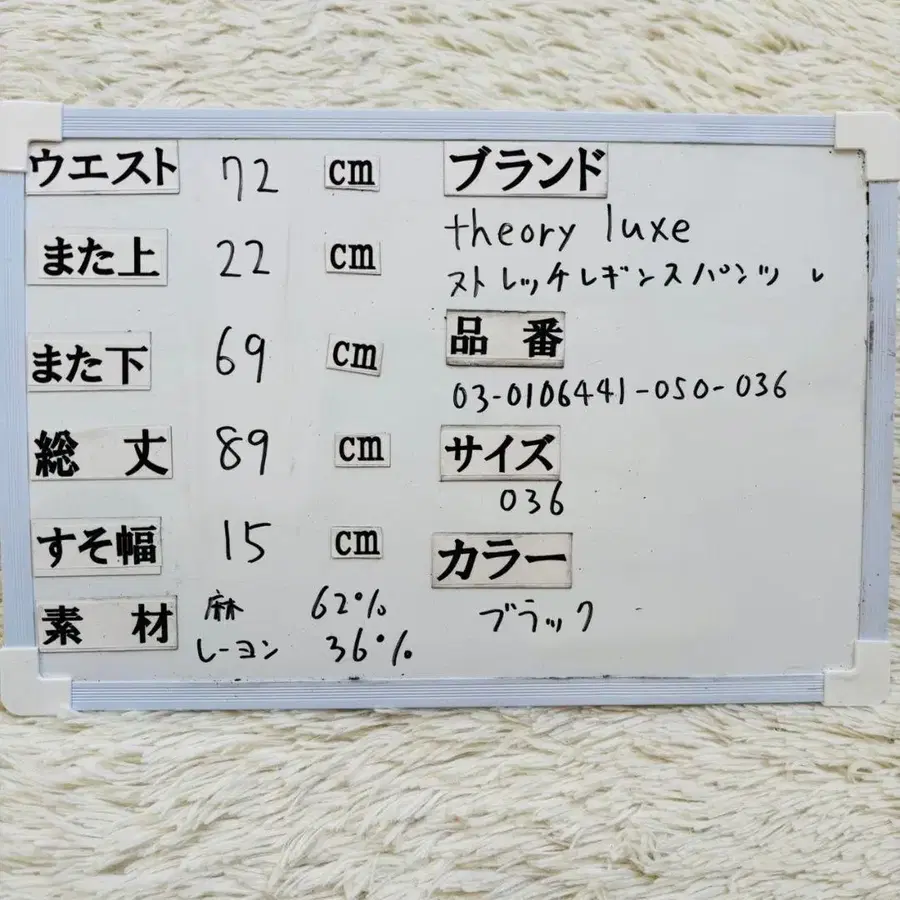 ウエスト 72 cm
また上 22 cm
また下 69 cm
総丈 89 cm
すそ幅 15 cm
素材 麻 62%
レーヨン 36%
ブランド
theory luxe
ストレッチレギンスパンツ
品番
03-0106441-050-036
サイズ
036
カラー
ブラック